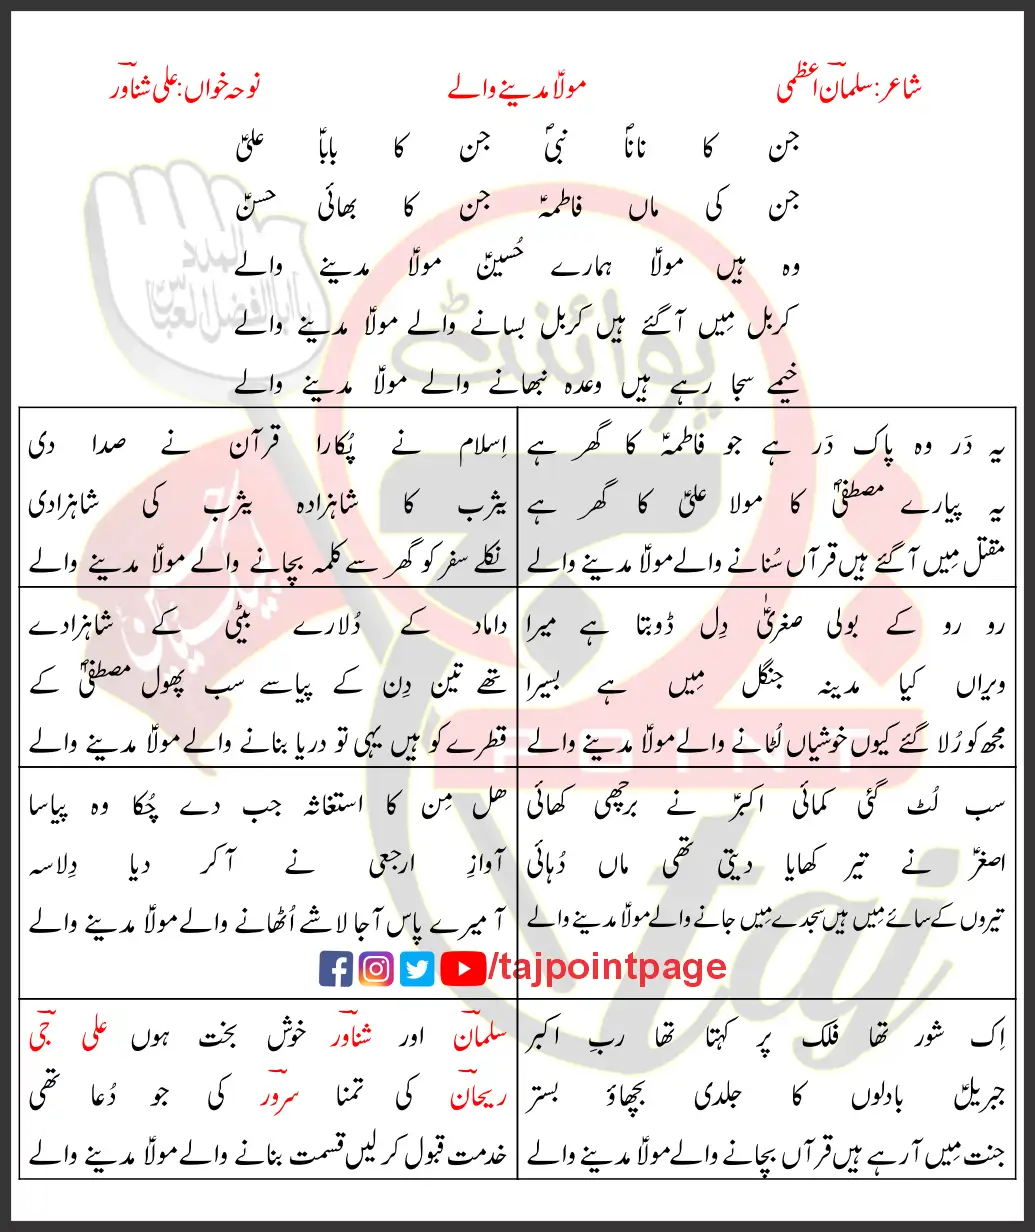 شاعر: سلمانؔ اعظمی
مولاؑ مدینے والے
نوحہ خواں: علی شناورؔ
جن کا ناناؐ نبیؐ جن کا باباؑ علیؑ
جن کی ماں فاطمہؑ جن کا بھائی حسنؑ
وہ ہیں مولاؑ ہمارے حُسینؑ مولاؑ مدینے والے
کربل مِیں آگئے ہیں کربل بسانے والے مولاؑ مدینے والے
خیمے سجا رہے ہیں وعدہ نبھانے والے مولاؑ مدینے والے
یہ دَر وہ پاک دَر ہے جو فاطمہؑ کا گھر ہے
یہ پیارے مصطفیٰؐ کا مولا علیؑ کا گھر ہے
مقتل مِیں آگئے ہیں قرآں سُنانے والے مولاؑ مدینے والے
اِسلام نے پُکارا قرآن نے صدا دی
یثرب کا شاہزادہ یثرب کی شاہزادی
نکلے سفر کو گھر سے کلمہ بچانے والے مولاؑ مدینے والے
رو رو کے بولی صغریٰؑ دِل ڈوبتا ہے میرا
ویراں کیا مدینہ جنگل مِیں ہے بسیرا
مجھ کو رُلا گئے کیوں خوشیاں لُٹانے والے مولاؑ مدینے والے
داماد کے دُلارے بیٹی کے شاہزادے
تھے تین دِن کے پیاسے سب پھول مصطفیٰؐ کے
قطرے کو ہیں یہی تو دریا بنانے والے مولاؑ مدینے والے
سب لُٹ گئی کمائی اکبرؑ نے برچھی کھائی
اصغرؑ نے تیر کھایا دیتی تھی ماں دُہائی
تیروں کے سائے مِیں ہیں سجدے مِیں جانے والے مولاؑ مدینے والے
ھل مِن کا استغاثہ جب دے چُکا وہ پیاسا
آوازِ ارجعی نے آکر دیا دِلاسہ
آ میرے پاس آجا لاشے اُٹھانے والے مولاؑ مدینے والے
/tajpointpage
اِک شور تھا فلک پر کہتا تھا ربِ اکبر
جبریلؑ بادلوں کا جلدی بچھاؤ بستر
جنت مِیں آرہے ہیں قرآں بچانے والے مولاؑ مدینے والے
سلمانؔ اور شناورؔ خوش بخت ہوں علی جیؔ
ریحانؔ کی تمنا سرورؔ کی جو دُعا تھی
خدمت قبول کرلیں قسمت بنانے والے مولاؑ مدینے والے
المدد
یا ابالفضل العباس
پوائنٹ
تاج
POINT
taj